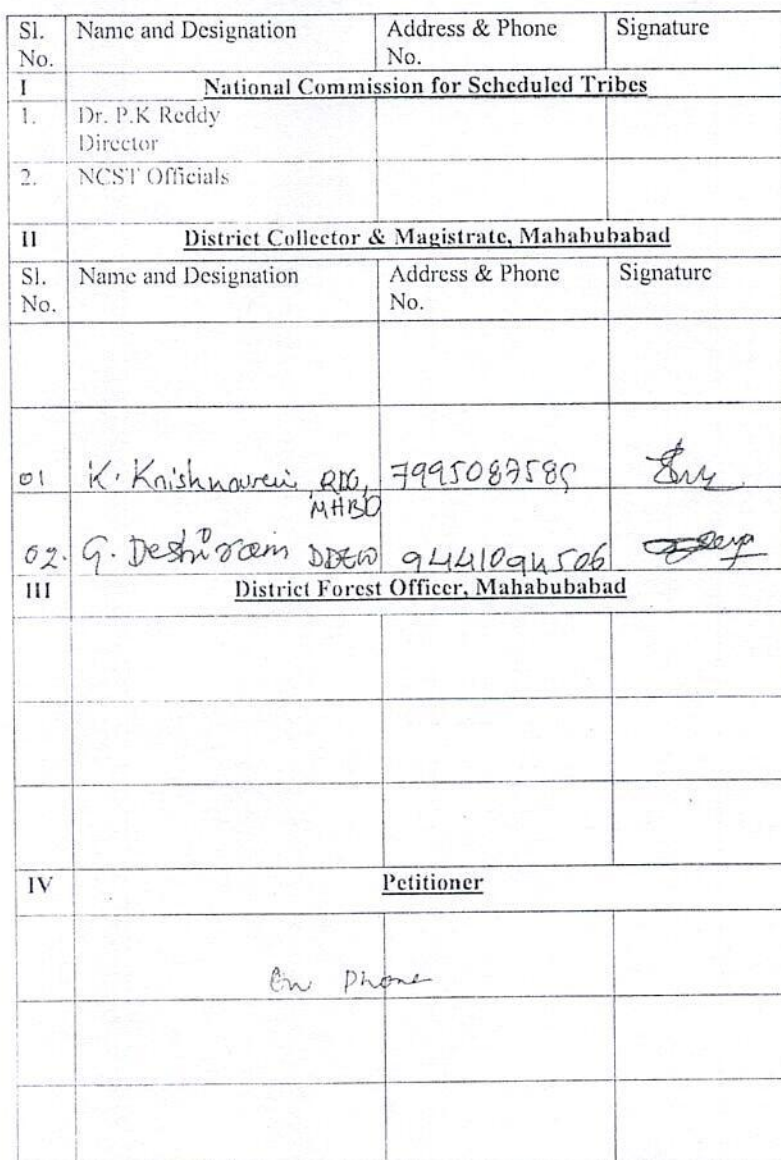 Sl. No. Name and Designation Address & Phone No. Signature
I National Commission for Scheduled Tribes
1. Dr. P.K Reddy Director
2. NCST Officials
II District Collector & Magistrate, Mahabubabad
Sl. No. Name and Designation Address & Phone No. Signature
01 K. RDO, MHBD 7995087585
02. G. Deshiram DDEW 9441094506
III District Forest Officer, Mahabubabad
IV Petitioner
On Phone